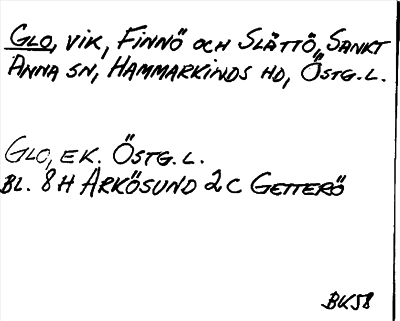 GLO, VIK, FINNÖ OCH SLÄTTÖ, SANKT
ANNA SN, HAMMARKINDS HD, ÖSTG.L.
GLO, EK. ÖSTG.L.
BL. 8H ARKÖSUND 2C GETTERÖ
BK58